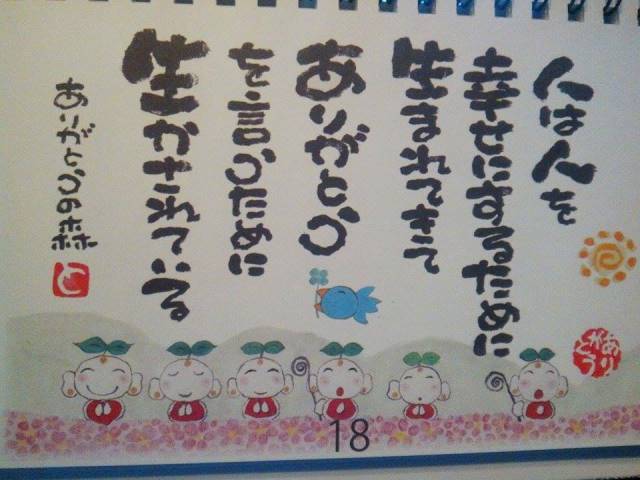 人は人を
幸せにするために
生まれてきて
ありがとう
を言うために
生かされている
ありがとうの森
ありがとう
18